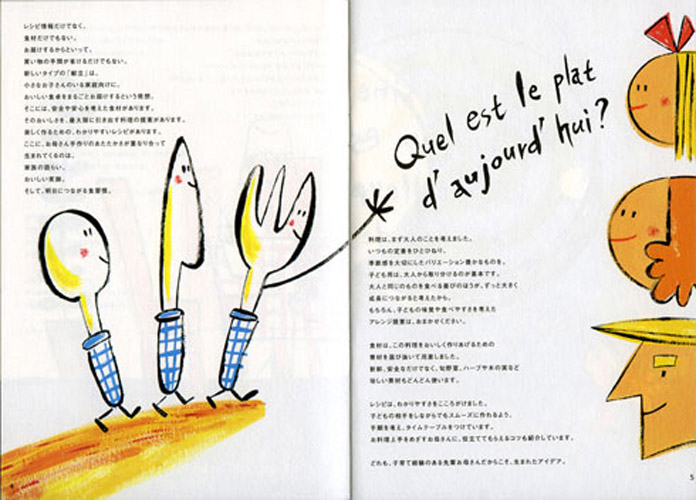 レシピ情報だけでなく、
食材だけでもない。
お届けするからといって、
買い物の手間が省けるだけでもない。
新しいタイプの「献立」は、
小さなお子さんのいる家庭向けに、
おいしい食卓をまるごとお届けするという発想。
そこには、安全や安心を考えた食材があります。
そのおいしさを、最大限に引き出す料理の提案があります。
楽しく作るための、わかりやすいレシピがあります。
ここに、お母さん手作りのあたたかさが重なり合って
生まれてくるのは、
家族の語らい。
おいしい笑顔。
そして、明日につながる食習慣。
Quel est le plat
d'aujourd'hui?
料理は、まず大人のことを考えました。
いつもの定番をひとひねり。
季節感を大切にしたバリエーション豊かなものを。
子ども用は、大人から取り分けるのが基本です。
大人と同じのものを食べる喜びのほうが、ずっと大きく
成長につながると考えたから。
もちろん、子どもの味覚や食べやすさを考えた
アレンジ提案は、おまかせください。
食材は、この料理をおいしく作りあげるための
素材を選び抜いて用意しました。
新鮮、安全なだけでなく、旬野菜、ハーブや木の実など
珍しい素材もどんどん使います。
レシピは、わかりやすさをこころがけました。
子どもの相手をしながらでもスムーズに作れるよう、
手順を考え、タイムテーブルをつけています。
お料理上手をめざすお母さんに、役立ててもらえるコツも紹介しています。
どれも、子育て経験のある先輩お母さんだからこそ、生まれたアイデア。
5